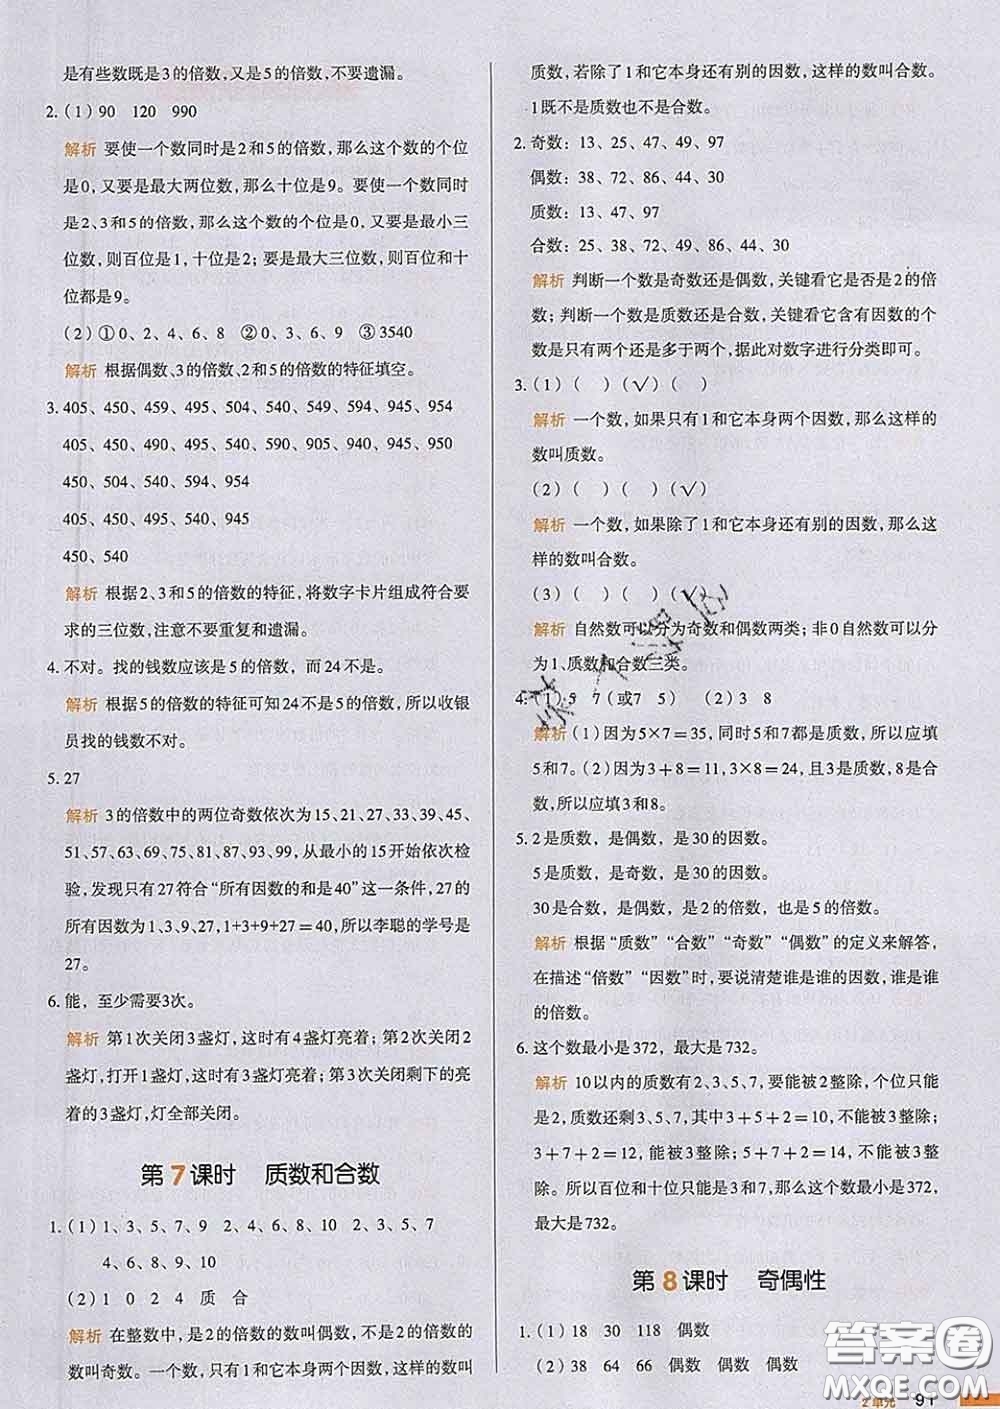 是有些数既是3的倍数,又是5的倍数,不要遗漏。
2.(1)90 120 990
解析 要使一个数同时是2和5的倍数,那么这个数的个位
是0,又要是最大两位数,那么十位是9。要使一个数同时
是2、3和5的倍数,那么这个数的个位是0,又要是最小三
位数,则百位是1,十位是2;要是最大三位数,则百位和十
位都是9。
(2)①0、2、4、6、8 ②0、3、6、9 ③3540
解析 根据偶数、3的倍数、2和5的倍数的特征填空。
3. 405、450、459、495、504、540、549、594、945、954
405、450、495、540、500、590、905、940、945、950
450、504、540、594、954
405、450、495、540、945
450、540
解析 根据2、3和5的倍数的特征,将数字卡片组成符合要
求的三位数,注意不要重复和遗漏。
4. 不对。找的钱数应该是5的倍数,而24不是。
解析 根据5的倍数的特征可知24不是5的倍数,所以收银
员找的钱数不对。
5. 27
解析 3的倍数中的两位奇数依次为15、21、27、33、39、45、
51、57、63、69、75、81、87、93、99,从最小的15开始依次检
验,发现只有27符合“所有因数的和是40”这一条件,27的
所有因数为1、3、9、27,1+3+9+27=40,所以李聪的学号是
27。
6. 能,至少需要3次。
解析 第1次关闭3盏灯,这时有4盏灯亮着;第2次关闭2
盏灯,打开1盏灯,这时有3盏灯亮着;第3次关闭剩下的亮
着的3盏灯,灯全部关闭。
第7课时 质数和合数
1.(1)1、3、5、7、9 2、4、6、8、10 2、3、5、7
4、6、8、9、10
(2)1 0 2 4 质 合
解析 在整数中,是2的倍数的数叫偶数,不是2的倍数的
数叫奇数。一个数,只有1和它本身两个因数,这样的数叫
质数,若除了1和它本身还有别的因数,这样的数叫合数。
1既不是质数也不是合数。
2. 奇数:13、25、47、49、97
偶数:38、72、86、44、30
质数:13、47、97
合数:25、38、72、49、86、44、30
解析 判断一个数是奇数还是偶数,关键看它是否是2的倍
数;判断一个数是质数还是合数,关键看它含有因数的个
数是只有两个还是多于两个,据此对数字进行分类即可。
3.(1)( )(√)( )
解析 一个数,如果只有1和它本身两个因数,那么这样的
数叫质数。
(2)( )( )(√)
解析 一个数,如果除了1和它本身还有别的因数,那么这
样的数叫合数。
(3)( )( )(√)
解析 自然数可以分为奇数和偶数两类;非0自然数可以分
为1、质数和合数三类。
4.(1)5 7(或7 5) (2)3 8
解析 (1)因为5×7=35,同时5和7都是质数,所以应填
5和7。(2)因为3+8=11,3×8=24,且3是质数,8是合
数,所以应填3和8。
5. 2是质数,是偶数,是30的因数。
5是质数,是奇数,是30的因数。
30是合数,是偶数,是2的倍数,也是5的倍数。
解析 根据“质数”“合数”“奇数”“偶数”的定义来解答,
在描述“倍数”“因数”时,要说清楚谁是谁的因数,谁是谁
的倍数。
6. 这个数最小是372,最大是732。
解析 10以内的质数有2、3、5、7,要能被2整除,个位只能
是2,质数还剩3、5、7,其中3+5+2=10,不能被3整除;
3+7+2=12,能被3整除;5+7+2=14,不能被3整
除。所以百位和十位只能是3和7,那么这个数最小是372,
最大是732。
第8课时 奇偶性
1.(1)18 30 118 偶数
(2)38 64 66 偶数 偶数 偶数
2单元 91
答案圈
MXQE.COM